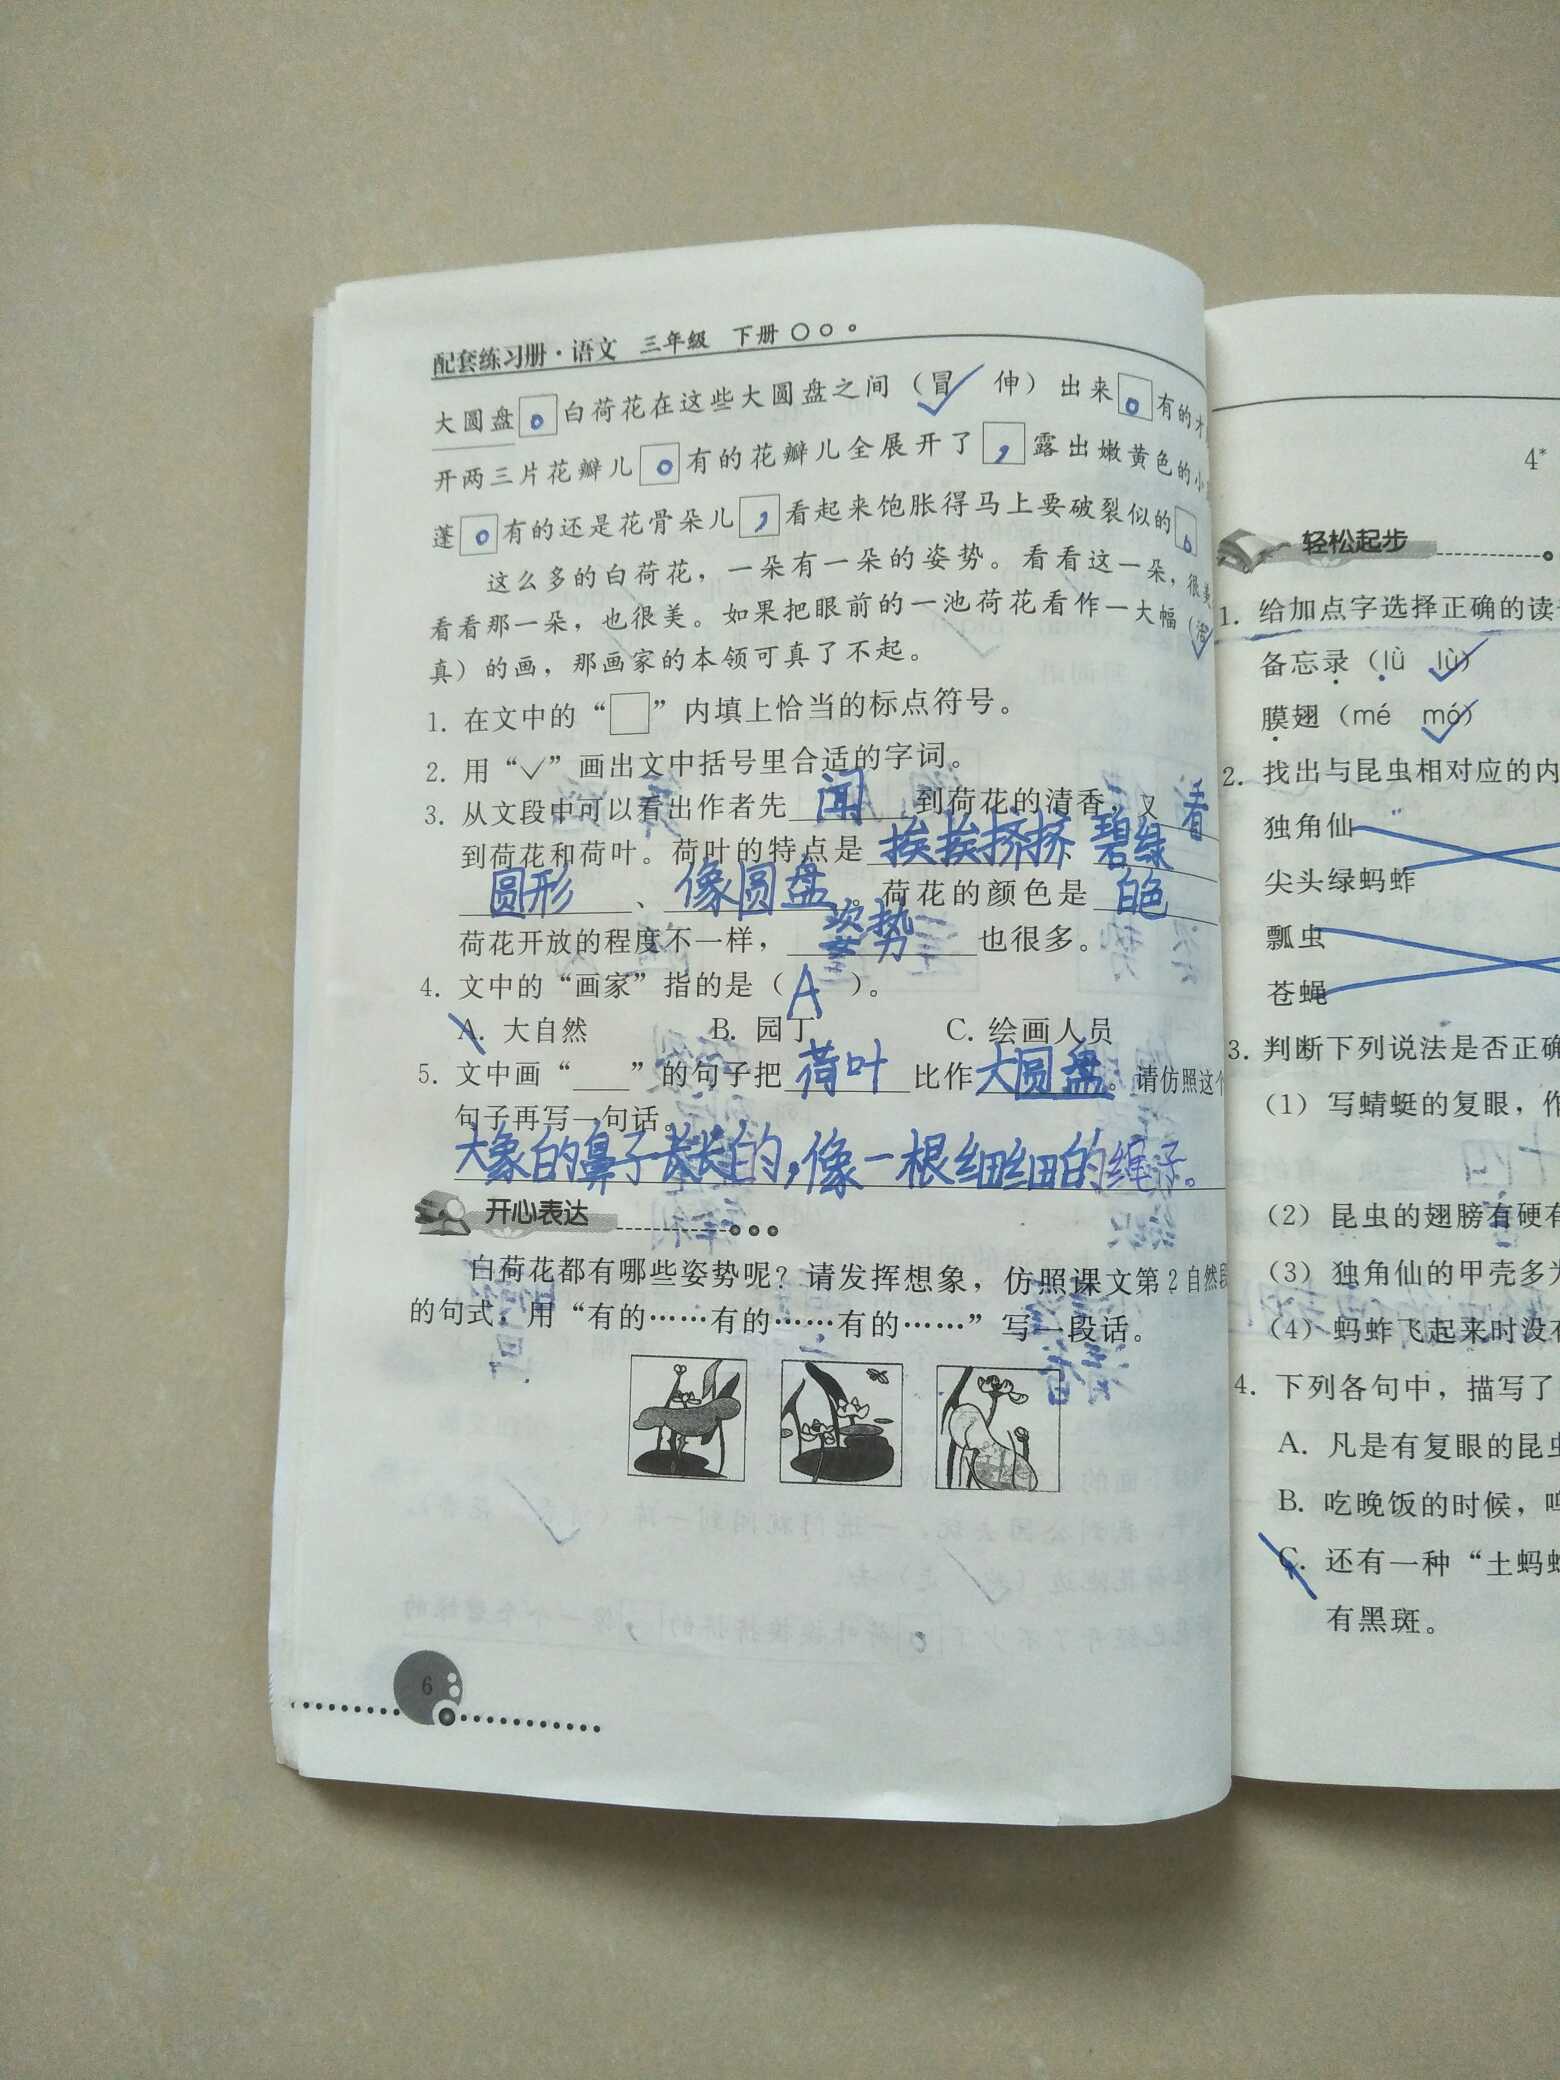 配套练习册·语文 三年级 下册
大圆盘。白荷花在这些大圆盘之间（冒 伸）出来。有的才
开两三片花瓣儿。有的花瓣儿全展开了，露出嫩黄色的小
蓬。有的还是花骨朵儿，看起来饱胀得马上要破裂似的。
这么多的白荷花，一朵有一朵的姿势。看看这一朵，很美
看看那一朵，也很美。如果把眼前的一池荷花看作一大幅（活
真）的画，那画家的本领可真了不起。
1. 在文中的“□”内填上恰当的标点符号。
2. 用“✓”画出文中括号里合适的字词。
3. 从文段中可以看出作者先 闻 到荷花的清香，又 看
到荷花和荷叶。荷叶的特点是 挨挨挤挤、碧绿
圆形、像圆盘。荷花的颜色是 白色
荷花开放的程度不一样，姿势 也很多。
4. 文中的“画家”指的是（A）。
A. 大自然 B. 园丁 C. 绘画人员
5. 文中画“___”的句子把 荷叶 比作 大圆盘。请仿照这个
句子再写一句话。
大象的鼻子长长的，像一根细细的绳子。
开心表达
白荷花都有哪些姿势呢？请发挥想象，仿照课文第2自然段
的句式，用“有的……有的……有的……”写一段话。
6
4*
轻松起步
1. 给加点字选择正确的读
备忘录（lǜ lù）
膜翅（mé mó）
2. 找出与昆虫相对应的内
独角仙
尖头绿蚂蚱
瓢虫
苍蝇
3. 判断下列说法是否正确
（1）写蜻蜓的复眼，作
（2）昆虫的翅膀有硬有
（3）独角仙的甲壳多为
（4）蚂蚱飞起来时没有
4. 下列各句中，描写了
A. 凡是有复眼的昆虫
B. 吃晚饭的时候，
C. 还有一种“土蚂蚱
有黑斑。